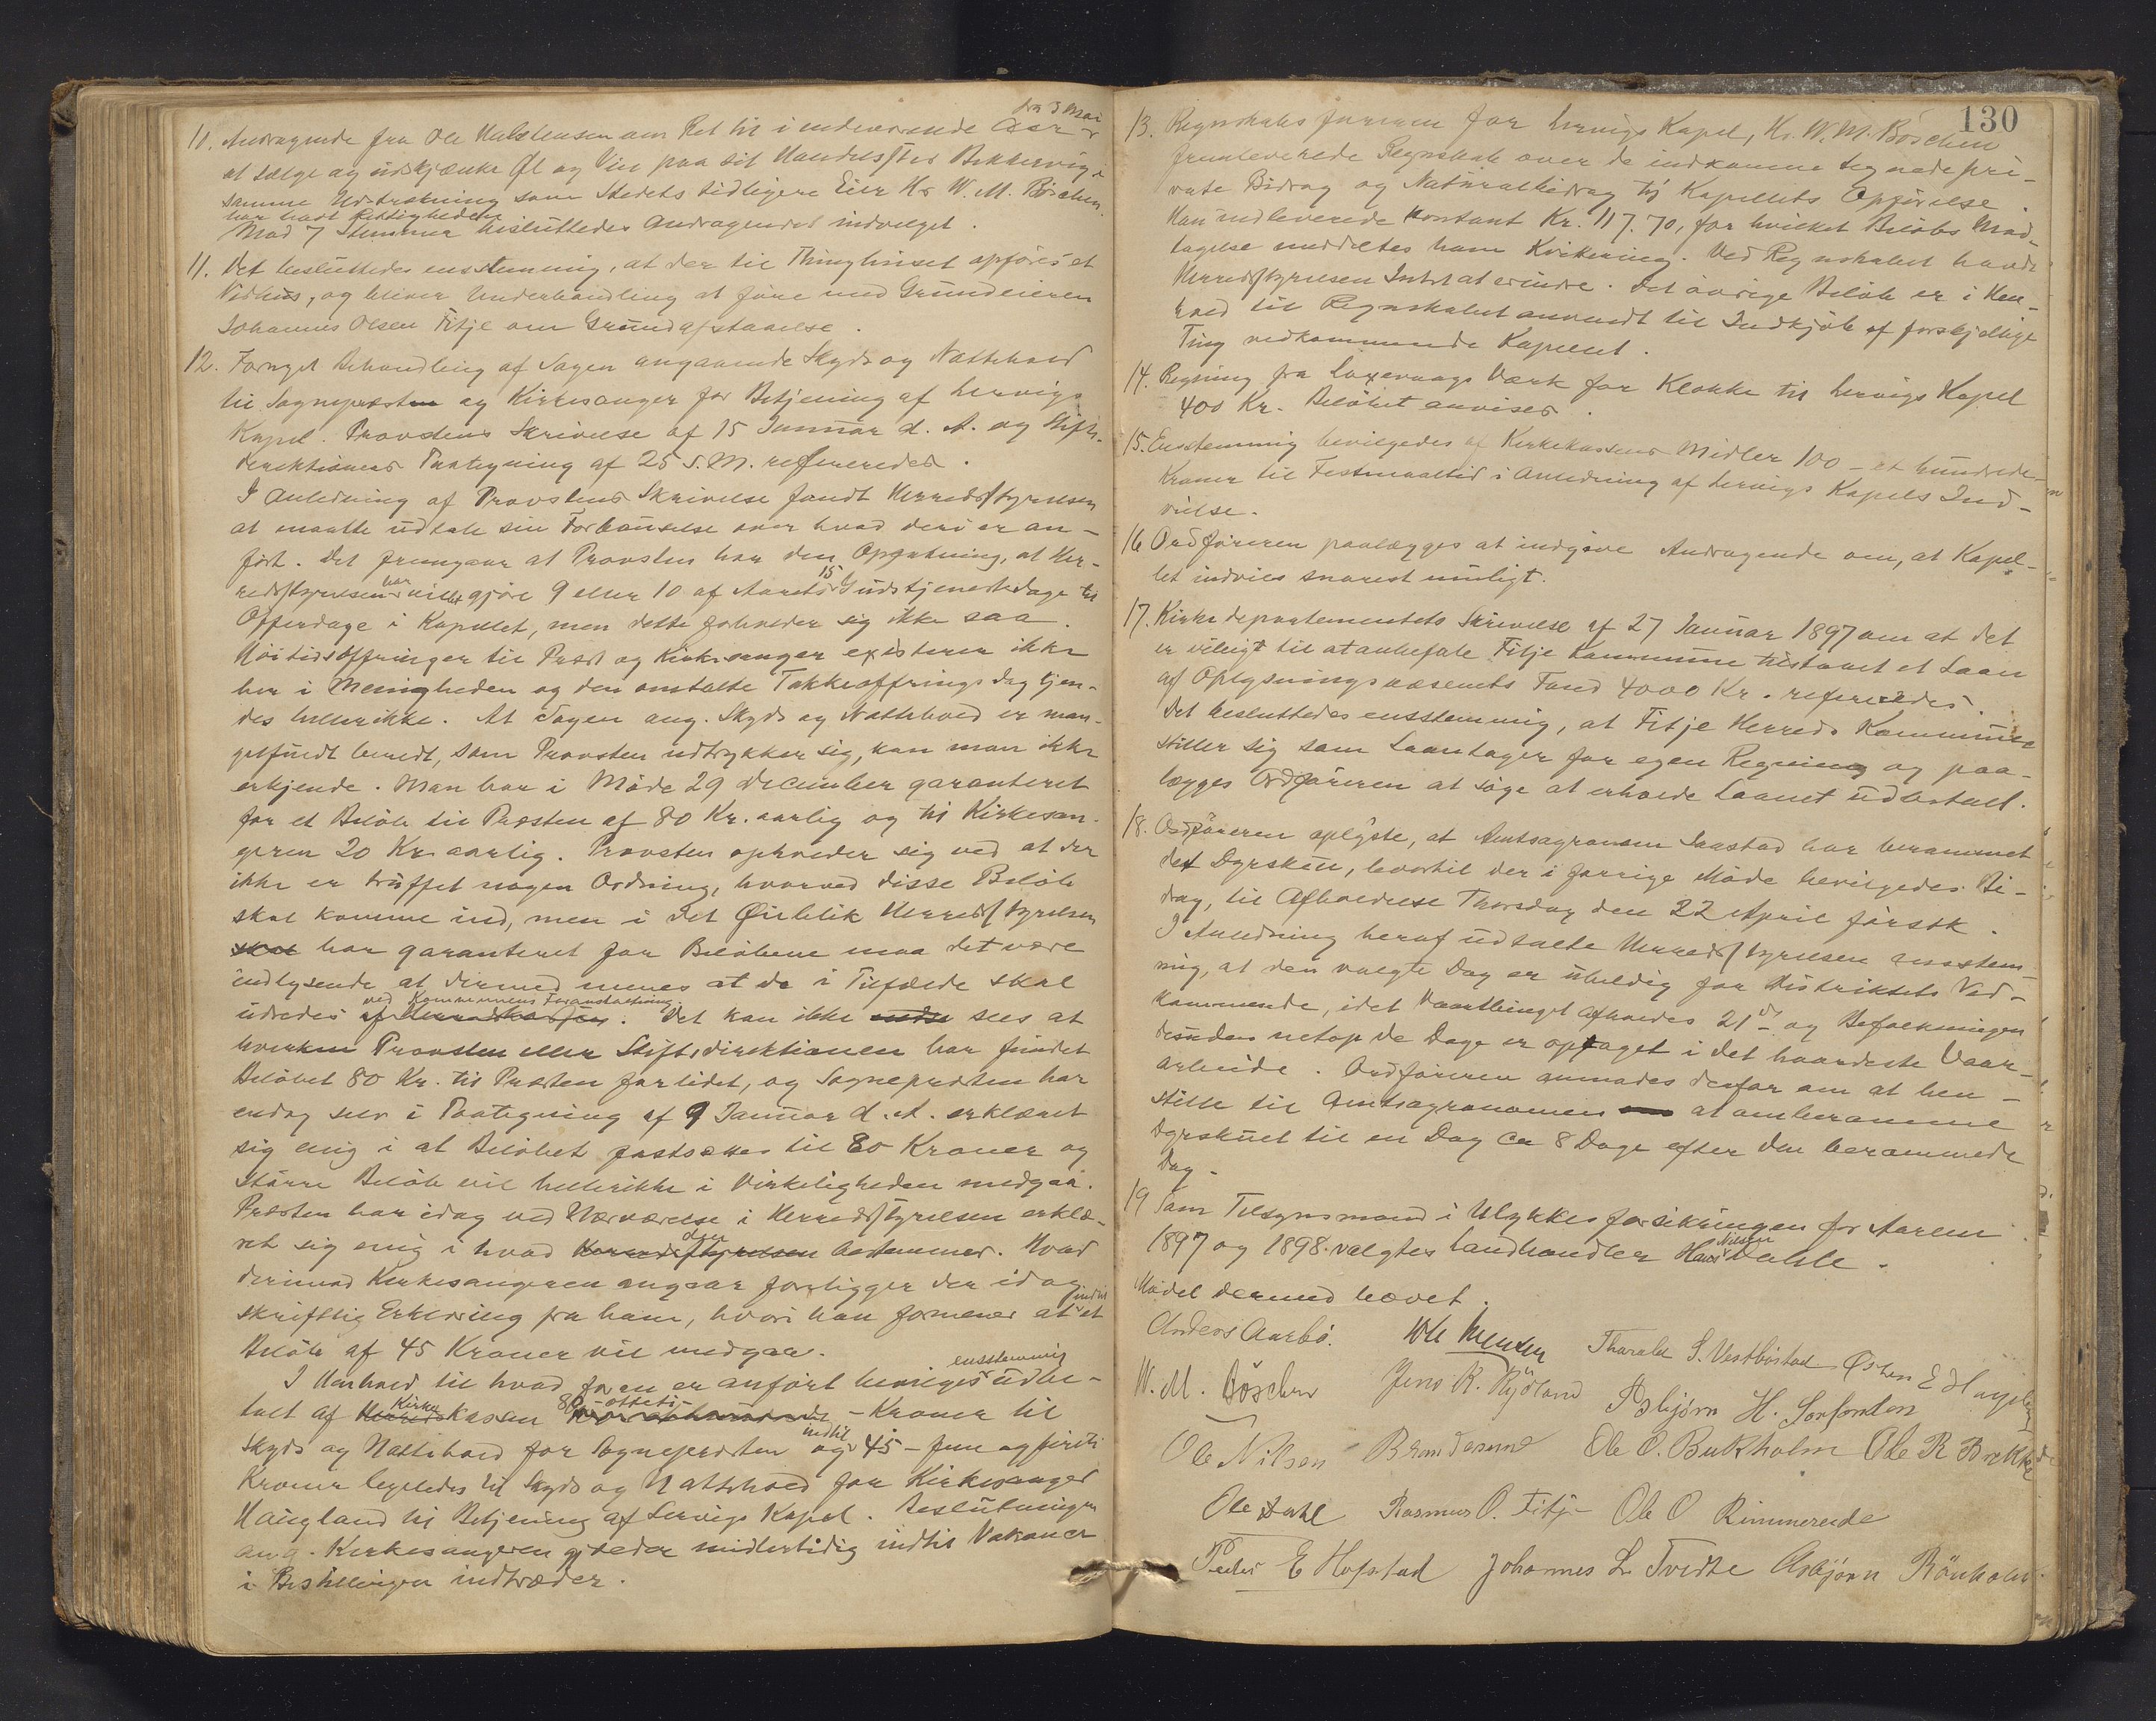 fra 3 Mai
10. Andragende fra Ole Halstensen om Ret til i indeværende Aar
at sælge og udskjænke Øl og Vin paa sit Handelssted Bekkervig i
samme Udstrækning som Stedets tidligere Eier Hr W. M. Böschen
har havt Rettigheden
Mod 7 Stemmer besluttedes Andragendet indvilget.
11. Det besluttedes enstemmig, at der til Thinghuset opføres et
Vedhus, og bliver Underhandling at føre med Grundeieren
Johannes Olsen Fitje om Grundafstaaelse.
12. Fornyet Behandling af Sagen angaaende Skyds og Nattehold
til Sognepræsten og Kirkesanger for Betjening af Lervigs
Kapel. Provstens Skrivelse af 15 Januar d. A. og Stifts-
direktionens Paategning af 25 s. M. refereredes.
I Anledning af Provstens Skrivelse fandt Herredsstyrelsen
at maatte udtale sin Forbauselse over hvad deri er an-
ført. Det fremgaar at Provsten har den Opfatning, at Her-
redsstyrelsen har villet gjøre 9 eller 10 af Aarets 15 Gudstjenestedage til
Offerdage i Kapellet, men dette forholder sig ikke saa.
Høitidsoffringer til Præst og Kirkesanger existerer ikke
her i Menigheden og den omtalte Takkeoffrings dag kjen-
des heller ikke. At Sagen ang. Skyds og Nattehold er man-
gelfuldt beredt, som Provsten udtrykker sig, kan man ikke
erkjende. Man har i Møde 29 december garanteret
for et Beløb til Præsten af 80 Kr. aarlig og til Kirkesan-
geren 20 Kr aarlig. Provsten opholder sig ved at der
ikke er truffet nogen Ordning, hvorved disse Beløb
skal komme ind, men i det Øieblik Herredsstyrelsen
skal har garanteret for Beløbene maa det være
indlysende at dermed menes at de i Tilfælde skal
ved Kommunens Foranstaltning
udredes af Herredskassen. Det kan ikke sees at
hverken Provsten eller Stiftsdirektionen har fundet
Beløbet 80 Kr. til Præsten for lidet, og Sognepræsten har
endog selv i Paategning af 9 Januar d. A. erklæret
sig enig i at Beløbet fastsættes til 80 Kroner og
større Beløb vil heller ikke i Virkeligheden medgaa.
Præsten har idag ved Nærværelse i Herredsstyrelsen erklæ-
ret sig enig i hvad Herredsstyrelsen den bestemmer. Hvad
derimod Kirkesangeren angaar foreligger der idag
skriftlig Erklæring fra ham, hvori han formener at indtil et
Beløb af 45 Kroner vil medgaa.
I Henhold til hvad foran er anført bevilges enstemmig udbe-
talt af Herreds Kirkekassen 80 - otteti - Kroner til
Skyds og Nattehold for Sognepræsten og indtil 45 - fem og firti
Kroner ligeledes til Skyds og Nattehold for Kirkesanger
Haugland til Betjening af Lervigs Kapel. Beslutningen
ang. Kirkesangeren gjælder midlertidig indtil Vakance
i Bestillingen indtræder.
130
13. Regnskabsføreren for Lervigs Kapel, Hr. W. M. Böschen
fremleverede Regnskab over de indkomne tegnede pri-
vate Bidrag og Naturalbidrag til Kapellets Opførelse.
Han indleverede kontant Kr. 117.70, for hvilket Beløbs Mod-
tagelse meddeltes ham Kvittering. Ved Regnskabet havde
Herredsstyrelsen Intet at erindre. Det øvrige Beløb er i Hen-
hold til Regnskabet anvendt til Indkjøb af forskjellige
Ting vedkommende Kapellet.
14. Regning fra Laxevaags Værk for Klokke til Lervigs Kapel
400 Kr. Beløbet anvises.
15. Enstemmig bevilgedes af Kirkekassens Midler 100 - et hundrede
Kroner til Festmaaltid i Anledning af Lervigs Kapels Ind-
vielse.
16 Ordføreren paalægges at indgive Andragende om, at Kapel-
let indvies snarest muligt.
17. Kirkedepartementets Skrivelse af 27 Januar 1897 om at det
er villigt til at anbefale Fitje Kommune tilstaaet et Laan
af Oplysningsvæsenets Fond 4000 Kr. refereredes.
Det besluttedes enstemmig, at Fitje Herreds Kommune
stiller sig som Laantager for egen Regning og paa-
lægges Ordføreren at søge at erholde Laanet udbetalt.
18. Ordføreren oplyste, at Amtsagronom Saastad har berammet
det Dyrskue, hvortil der i forrige Møde bevilgedes Bi-
drag, til Afholdelse Thorsdag den 22 April førstk.
I Anledning heraf udtalte Herredsstyrelsen enstem-
mig, at den valgte Dag er uheldig for Distriktets Ved-
kommende, idet Vaartinget afholdes 21de og Befolkningen
desuden netop de Dage er optaget i det haardeste Vaar-
arbeide. Ordføreren anmodes derfor om at hen-
stille til Amtsagronomen at omberamme
Dyrskuet til en Dag ca 8 Dage efter den berammede
Dag.
19 Som Tilsynsmand i Ulykkesforsikringen for Aarene
1897 og 1898 valgtes Landhandler Hans Nilsen Dahle.
Mødet dermed hævet.
Anders Aarbø. Thorald S. Vestbøstad Østen E Hageberg
W. M. Böschen Jens R. Rydland Asbjørn H.
Ole Nilsen Brandasund Ole O. Bukholm Ole R Brekke
Ole Dahl Rasmus O. Fitje Ole O Rimmereide
Peder E Hofstad Johannes L. Tvedte Asbjørn Rönholm